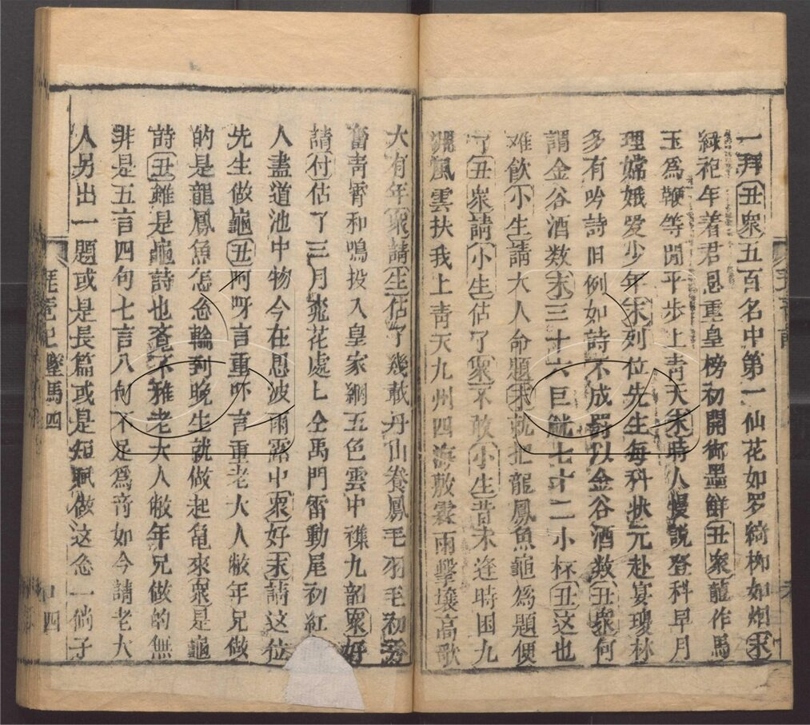 一拜丑衆五百名中第一仙花如罗綺柳如烟末
綠袍年着君恩重皇榜初開御墨鮮丑衆龍作馬
玉爲鞭等閒平步上青天末時人慢說登科早月
理嫦娥愛少年末列位先生每科状元赴宴瓊林
多有吟詩旧例如詩不成罰以金谷酒数丑衆何
謂金谷酒数末三十六巨觥七十二小杯丑这也
难飲小生請大人命題末就把龍鳳魚龜爲題便
了丑衆請小生估了衆不敢小生昔未逢時困九
淵風雲扶我上青天九州四海敷霖雨擊壤高歌
大有年衆請生估了幾載丹山養鳳毛羽毛初
奮青霄和鳴投入皇家網五色雲中襍九韶衆好
請付估了三月桃花處七仝禹門雷動尾初紅
人盡道池中物今在恩波雨露中衆好末請这位
先生做龜丑阿呀言重吓言重老大人敝年兄做
的是龍鳳魚怎怎輪到晚生就做起龟來衆是龜
詩丑雖是龜詩也竟不雅老大人敝年兄做的無
非是五言四句七言八句不足爲奇如今請老大
人另出一題或是長篇或是短賦做这怎一倘子
琵琶記 墜馬四
口四